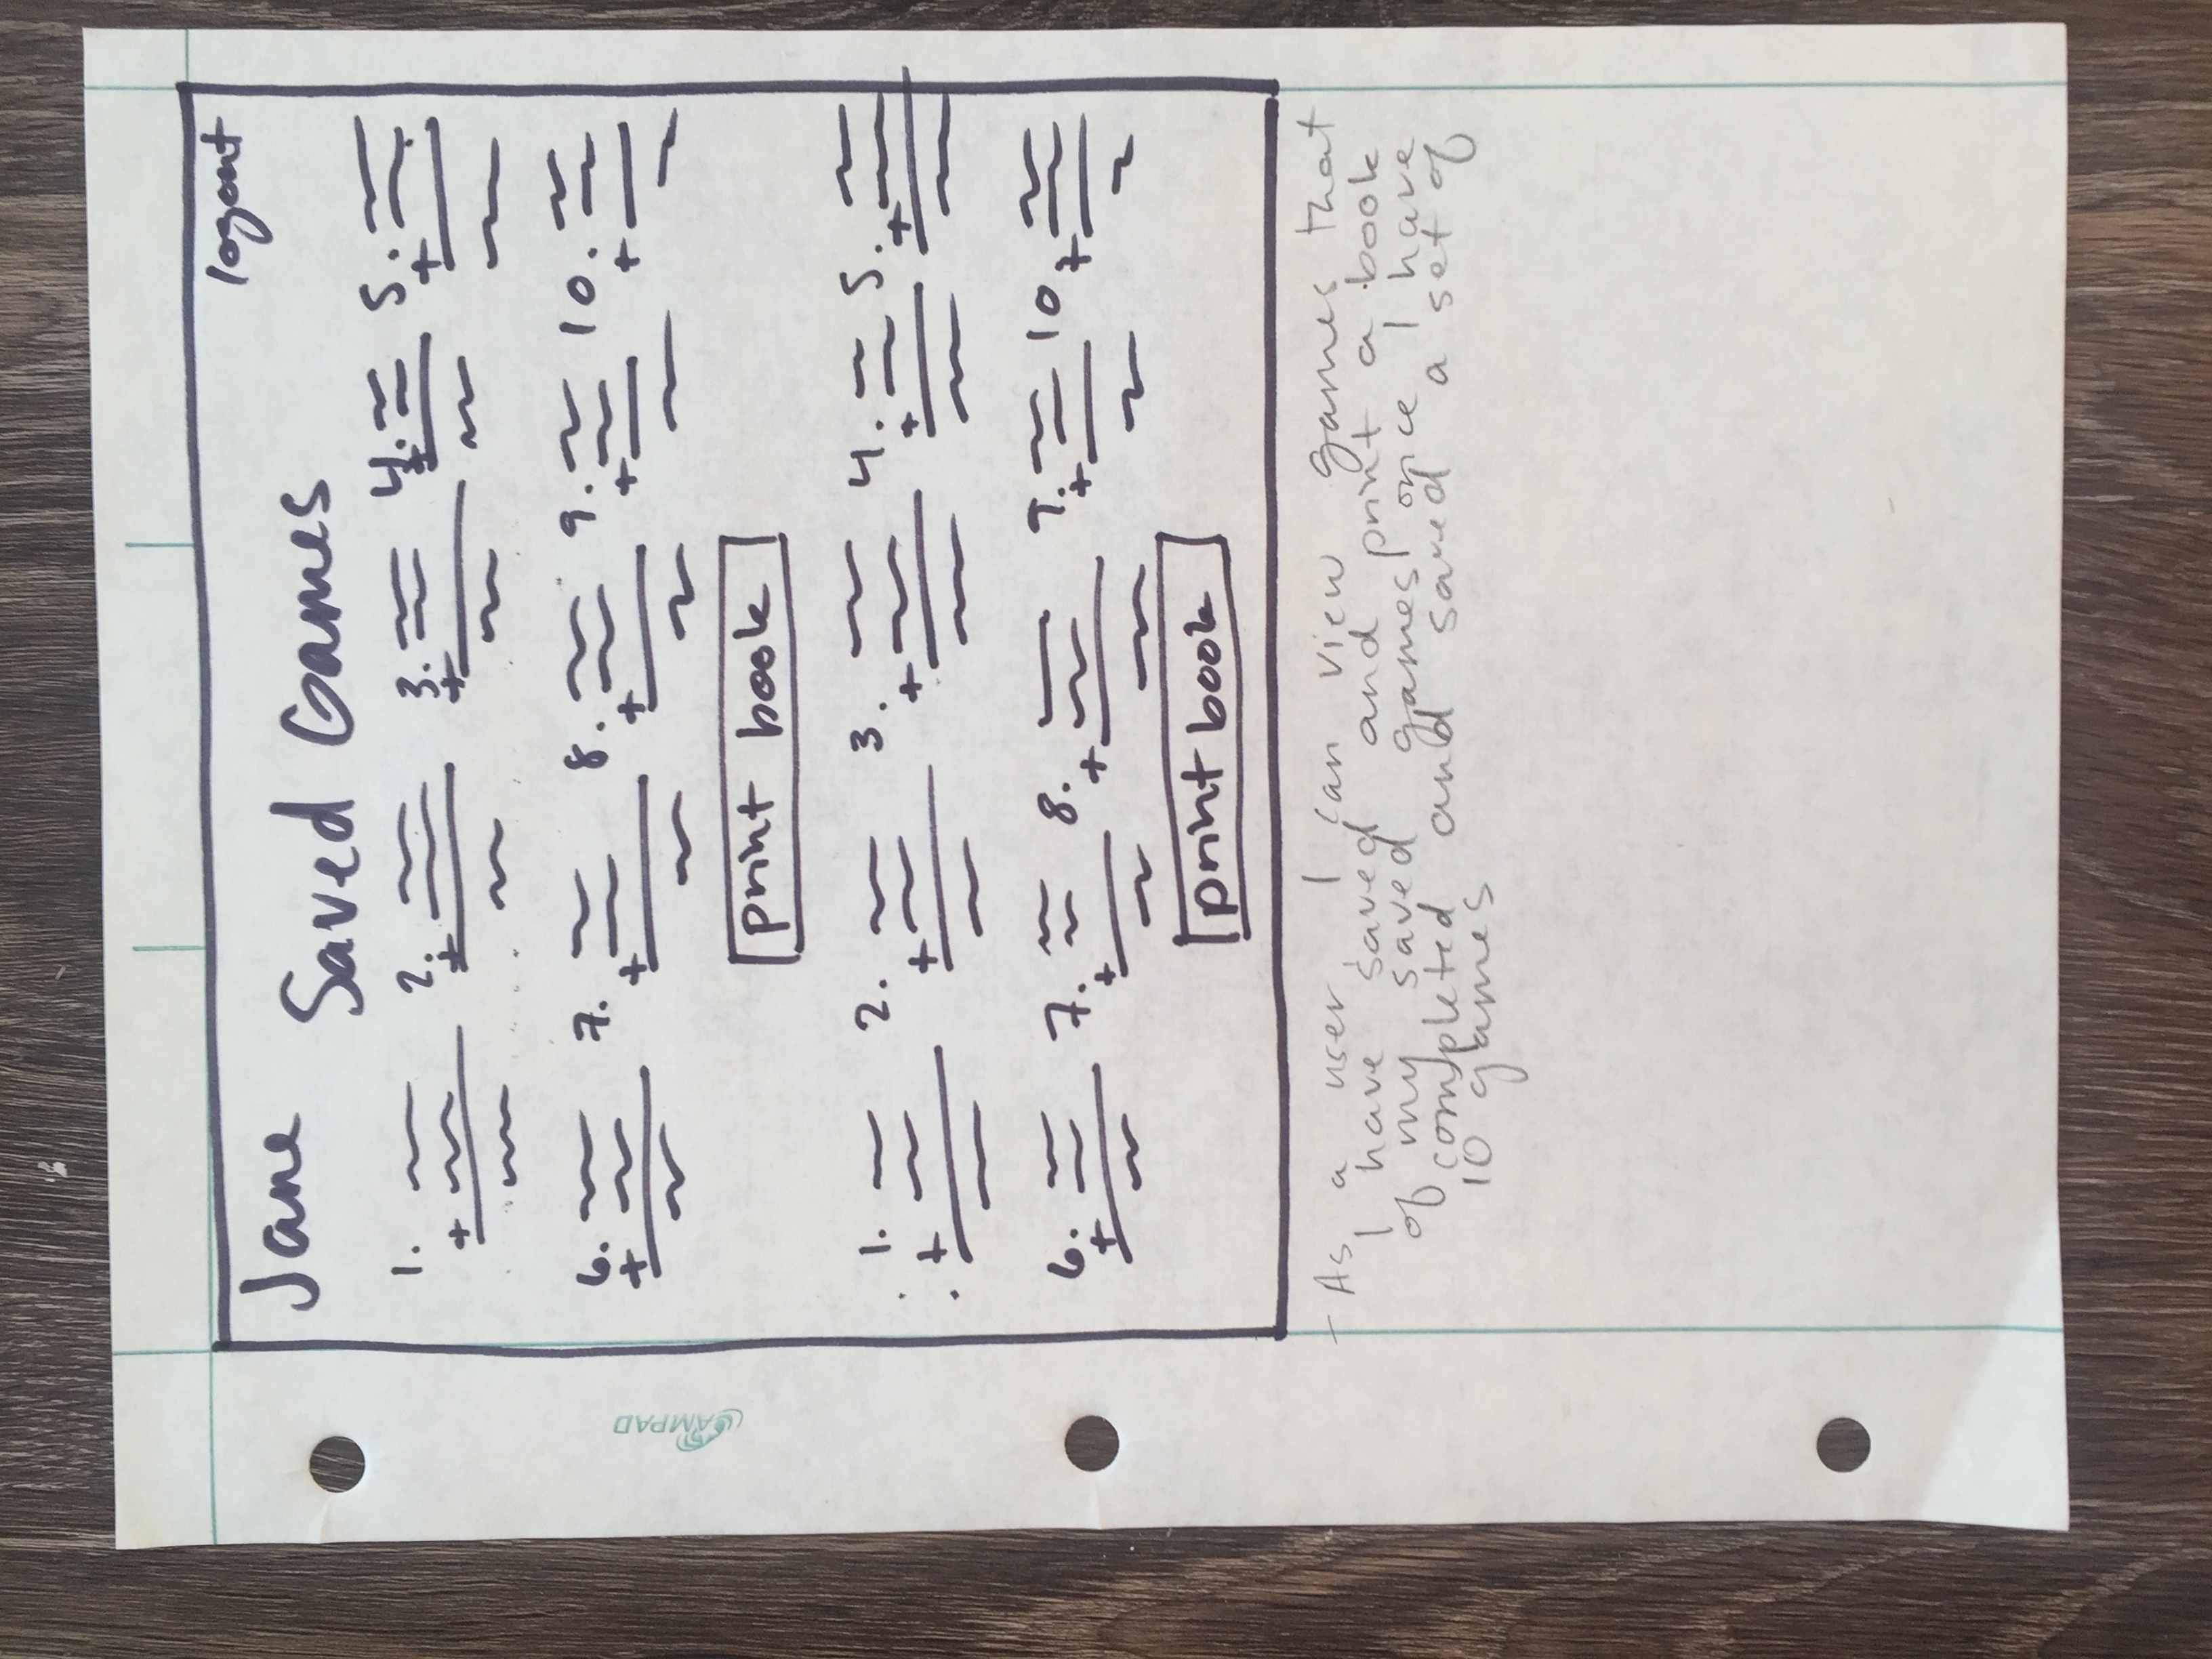 logout
Jane
Saved Games
1. 2. 3. 4. 5.
+ + + + +
6. 7. 8. 9. 10.
+ + + + +
print book
1. 2. 3. 4. 5.
+ + + + +
6. 7. 8. 9. 10.
+ + + + +
print book
- As a user, I can view games that
I have saved and print a book
of my saved games once I have
completed and saved a set of
10 games
AMPAD